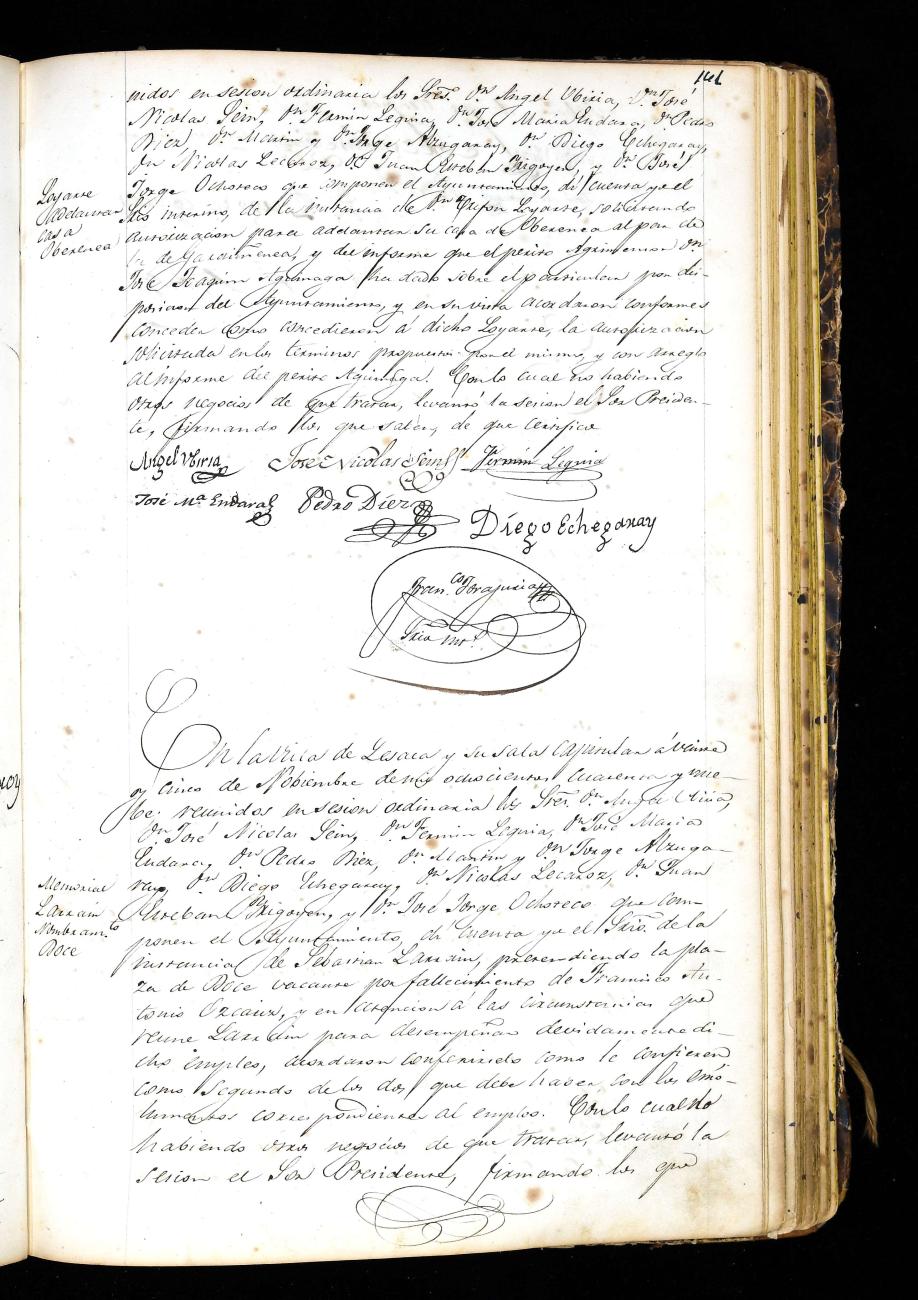 141
nidos en sesion ordinaria los Sres. Dn. Angel Ubiria, Dn. José
Nicolás Sein, Dn. Fermin Leguia, Dn. José Maria Endara, Dn. Pedro
Diez, Dn. Martin y Dn. Jorge Alzugaray, Dn. Diego Echegaray,
Dn. Nicolas Lecaroz, Dn. Juan Esteban Yrigoyen, y Dn. José
Jorge Ochoteco que componen el Ayuntamiento, dí cuenta yo el
Srio interino, de la instancia de Dn. Trifon Loyarte, solicitando
autorizacion para adelantar su casa de Oberenea al par de
la de y del informe que el perito Agrimensor Dn.
José Joaquin Aguinaga ha dado sobre el particular por dis-
posicion del Ayuntamiento, y en su vista acordaron conformes
conceder como concedieron á dicho Loyarte, la autorizacion
solicitada en los terminos propuestos por el mismo, y con arreglo
al informe del perito Aguinaga. Con lo cual no habiendo
otros negocios de que tratar, levantó la sesion el Sor Presiden-
te, firmando los que saben, de que certifico
Loyarte
adelantar
casa
Oberenea
Angel Ubiria José Nicolas Sein Fermin Leguia
José Ma. Endara Pedro Diez
Diego Echegaray
Fran.co
Srio int.o
En la Villa de Lesaca y su sala Capitular á veinte
y cinco de Nobiembre de mil ochocientos cuarenta y nue-
be: reunidos en sesion ordinaria los Sres. Dn. Angel Ubiria,
Dn. José Nicolas Sein, Dn. Fermin Leguia, Dn. José Maria
Endara, Dn. Pedro Diez, Dn. Martin y Dn. Jorge Alzuga-
ray, Dn. Diego Echegaray, Dn. Nicolas Lecaroz, Dn. Juan
Esteban Yrigoyen, y Dn. José Jorge Ochoteco que com-
ponen el Ayuntamiento, dí cuenta yo el Srio. de la
instancia de Sebastian Larrain, pretendiendo la pla-
za de Doce vacante por fallecimiento de Francisco An-
tonio y en atencion á las circunstancias que
reune Larrain para desempeñar devidamente di-
cho empleo, acordaron conferirselo como le confieren
como segundo de los dos que debe haber con los emo-
lumentos correspondientes al empleo. Con lo cual no
habiendo otros negocios de que tratar, levantó la
sesion el Sor Presidente, firmando los que
Memorial
Larrain
Nombram.to
Doce